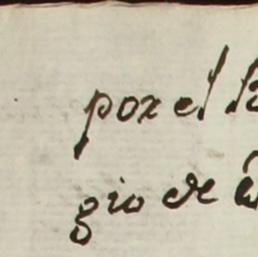 por el
gio de